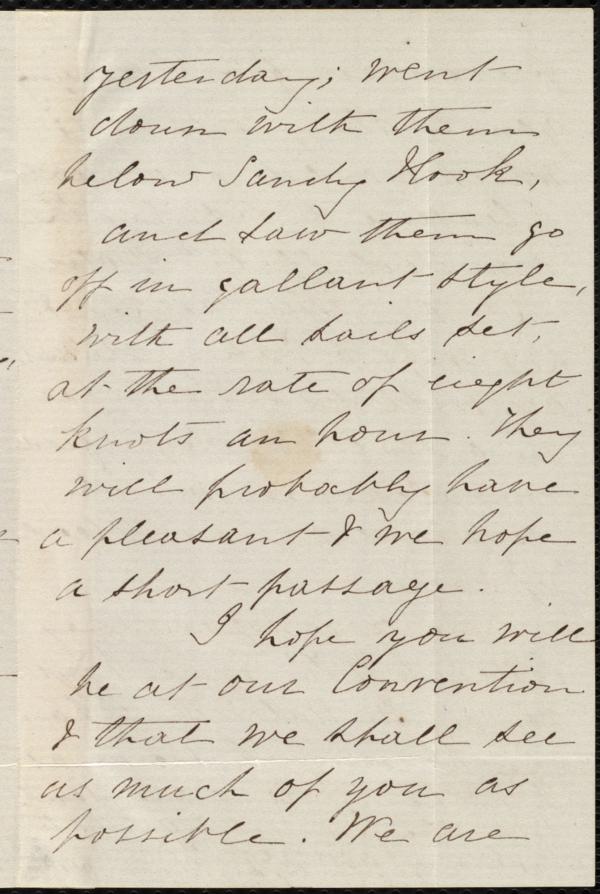 yesterday; went
down with them
below Sandy Hook,
and saw them go
off in gallant style,
with all sails set,
at the rate of eight
knots an hour. They
will probably have
a pleasant & we hope
a short passage.
I hope you will
be at our Convention
& that we shall see
as much of you as
possible. We are